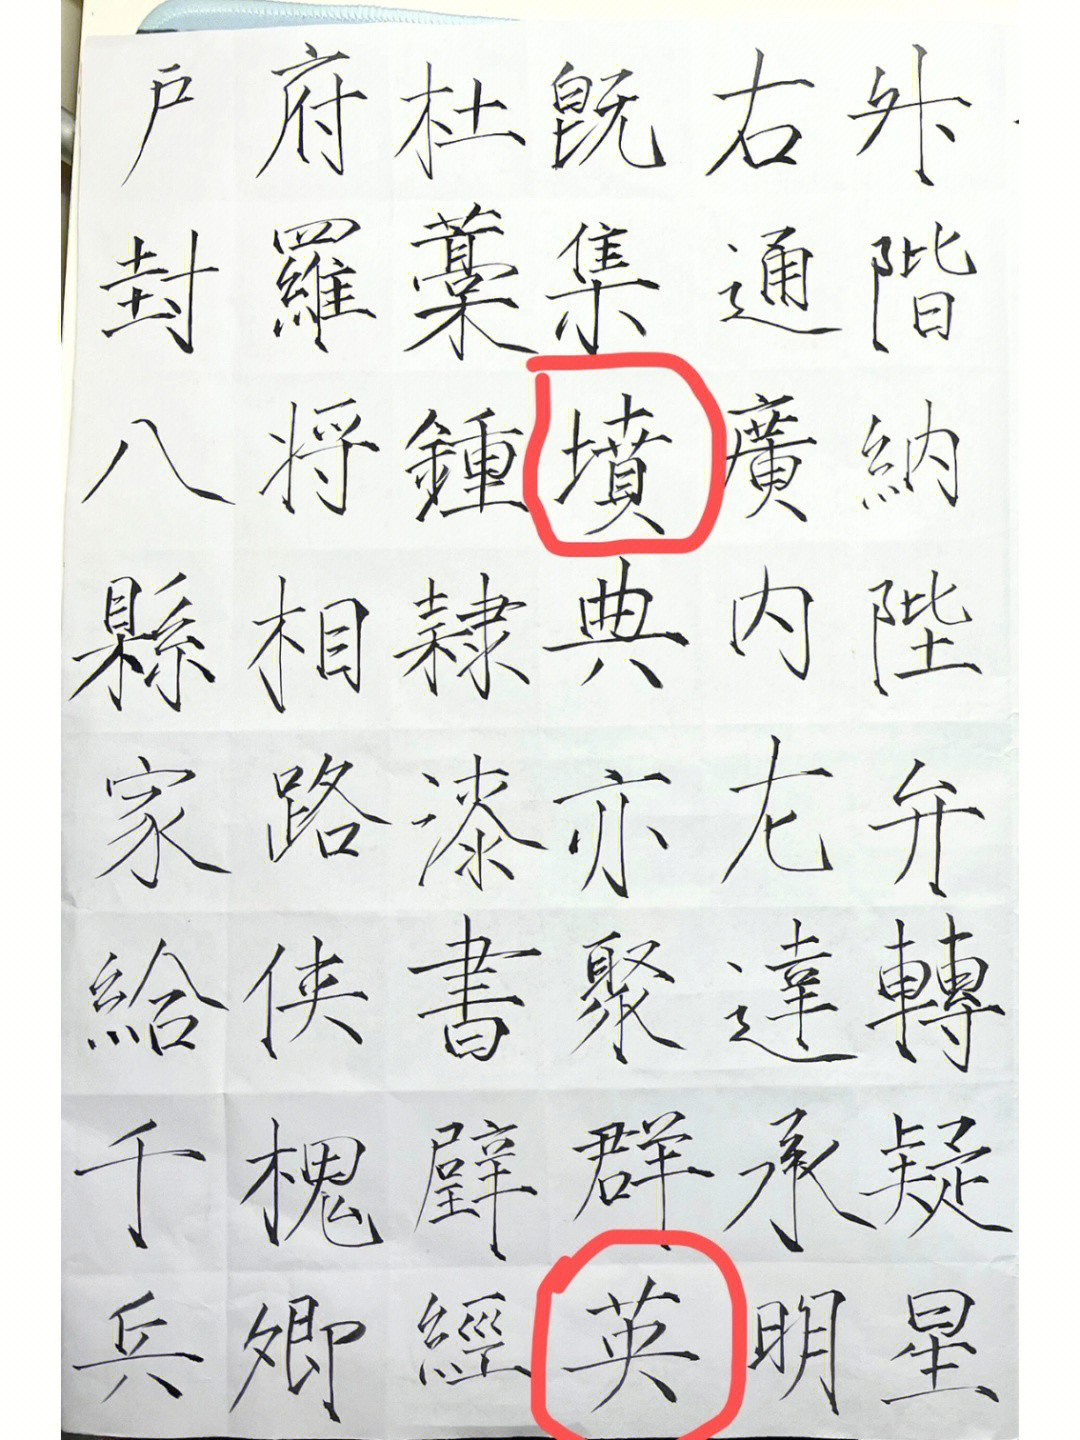 升階納陛弁轉疑星
右通廣内左達承明
既集墳典亦聚群英
杜藁鍾隸漆書壁經
府羅将相路俠槐卿
戸封八縣家給千兵